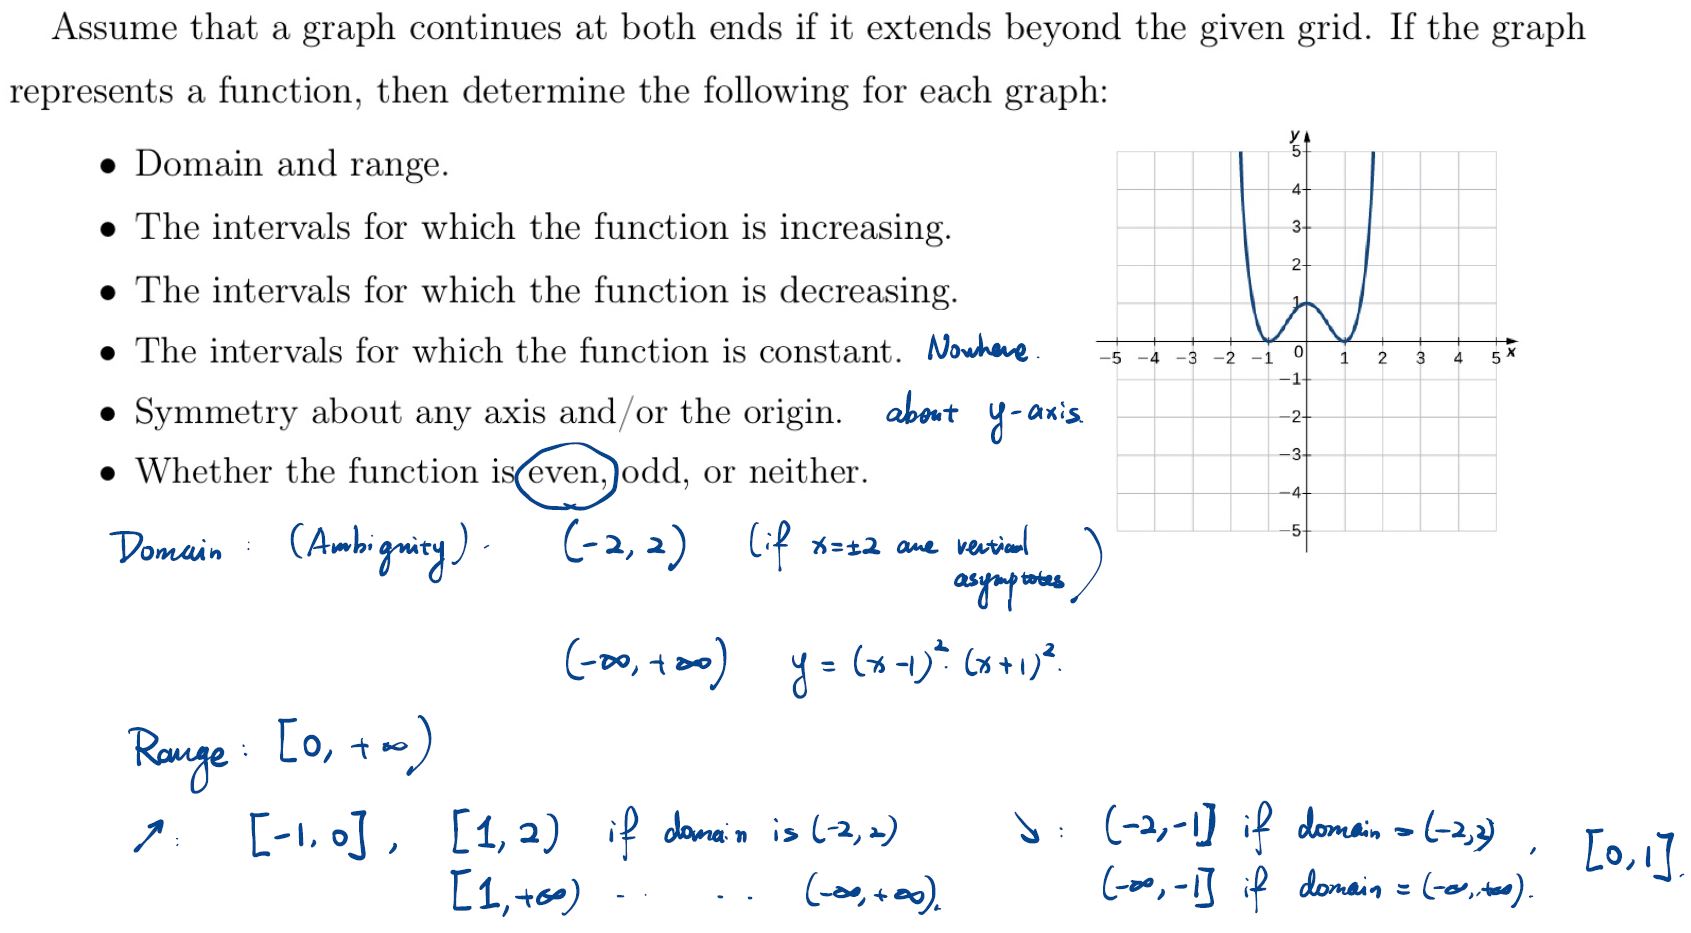 Assume that a graph continues at both ends if it extends beyond the given grid. If the graph
represents a function, then determine the following for each graph:
• Domain and range.
• The intervals for which the function is increasing.
• The intervals for which the function is decreasing.
• The intervals for which the function is constant. Nowhere.
• Symmetry about any axis and/or the origin. about y-axis.
• Whether the function is even, odd, or neither.
y
5
4
3
2
1
-5 -4 -3 -2 -1 0 1 2 3 4 5 x
-1
-2
-3
-4
-5
Domain : (Ambiguity). (-2, 2) (if x=±2 are vertical
asymptotes)
(-∞, +∞) y = (x-1)². (x+1)².
Range : [0, +∞)
↗ : [-1, 0], [1, 2) if domain is (-2, 2) ↘ : (-2, -1] if domain = (-2, 2), [0, 1].
[1, +∞) .. .. (-∞, +∞). (-∞, -1] if domain = (-∞, +∞).